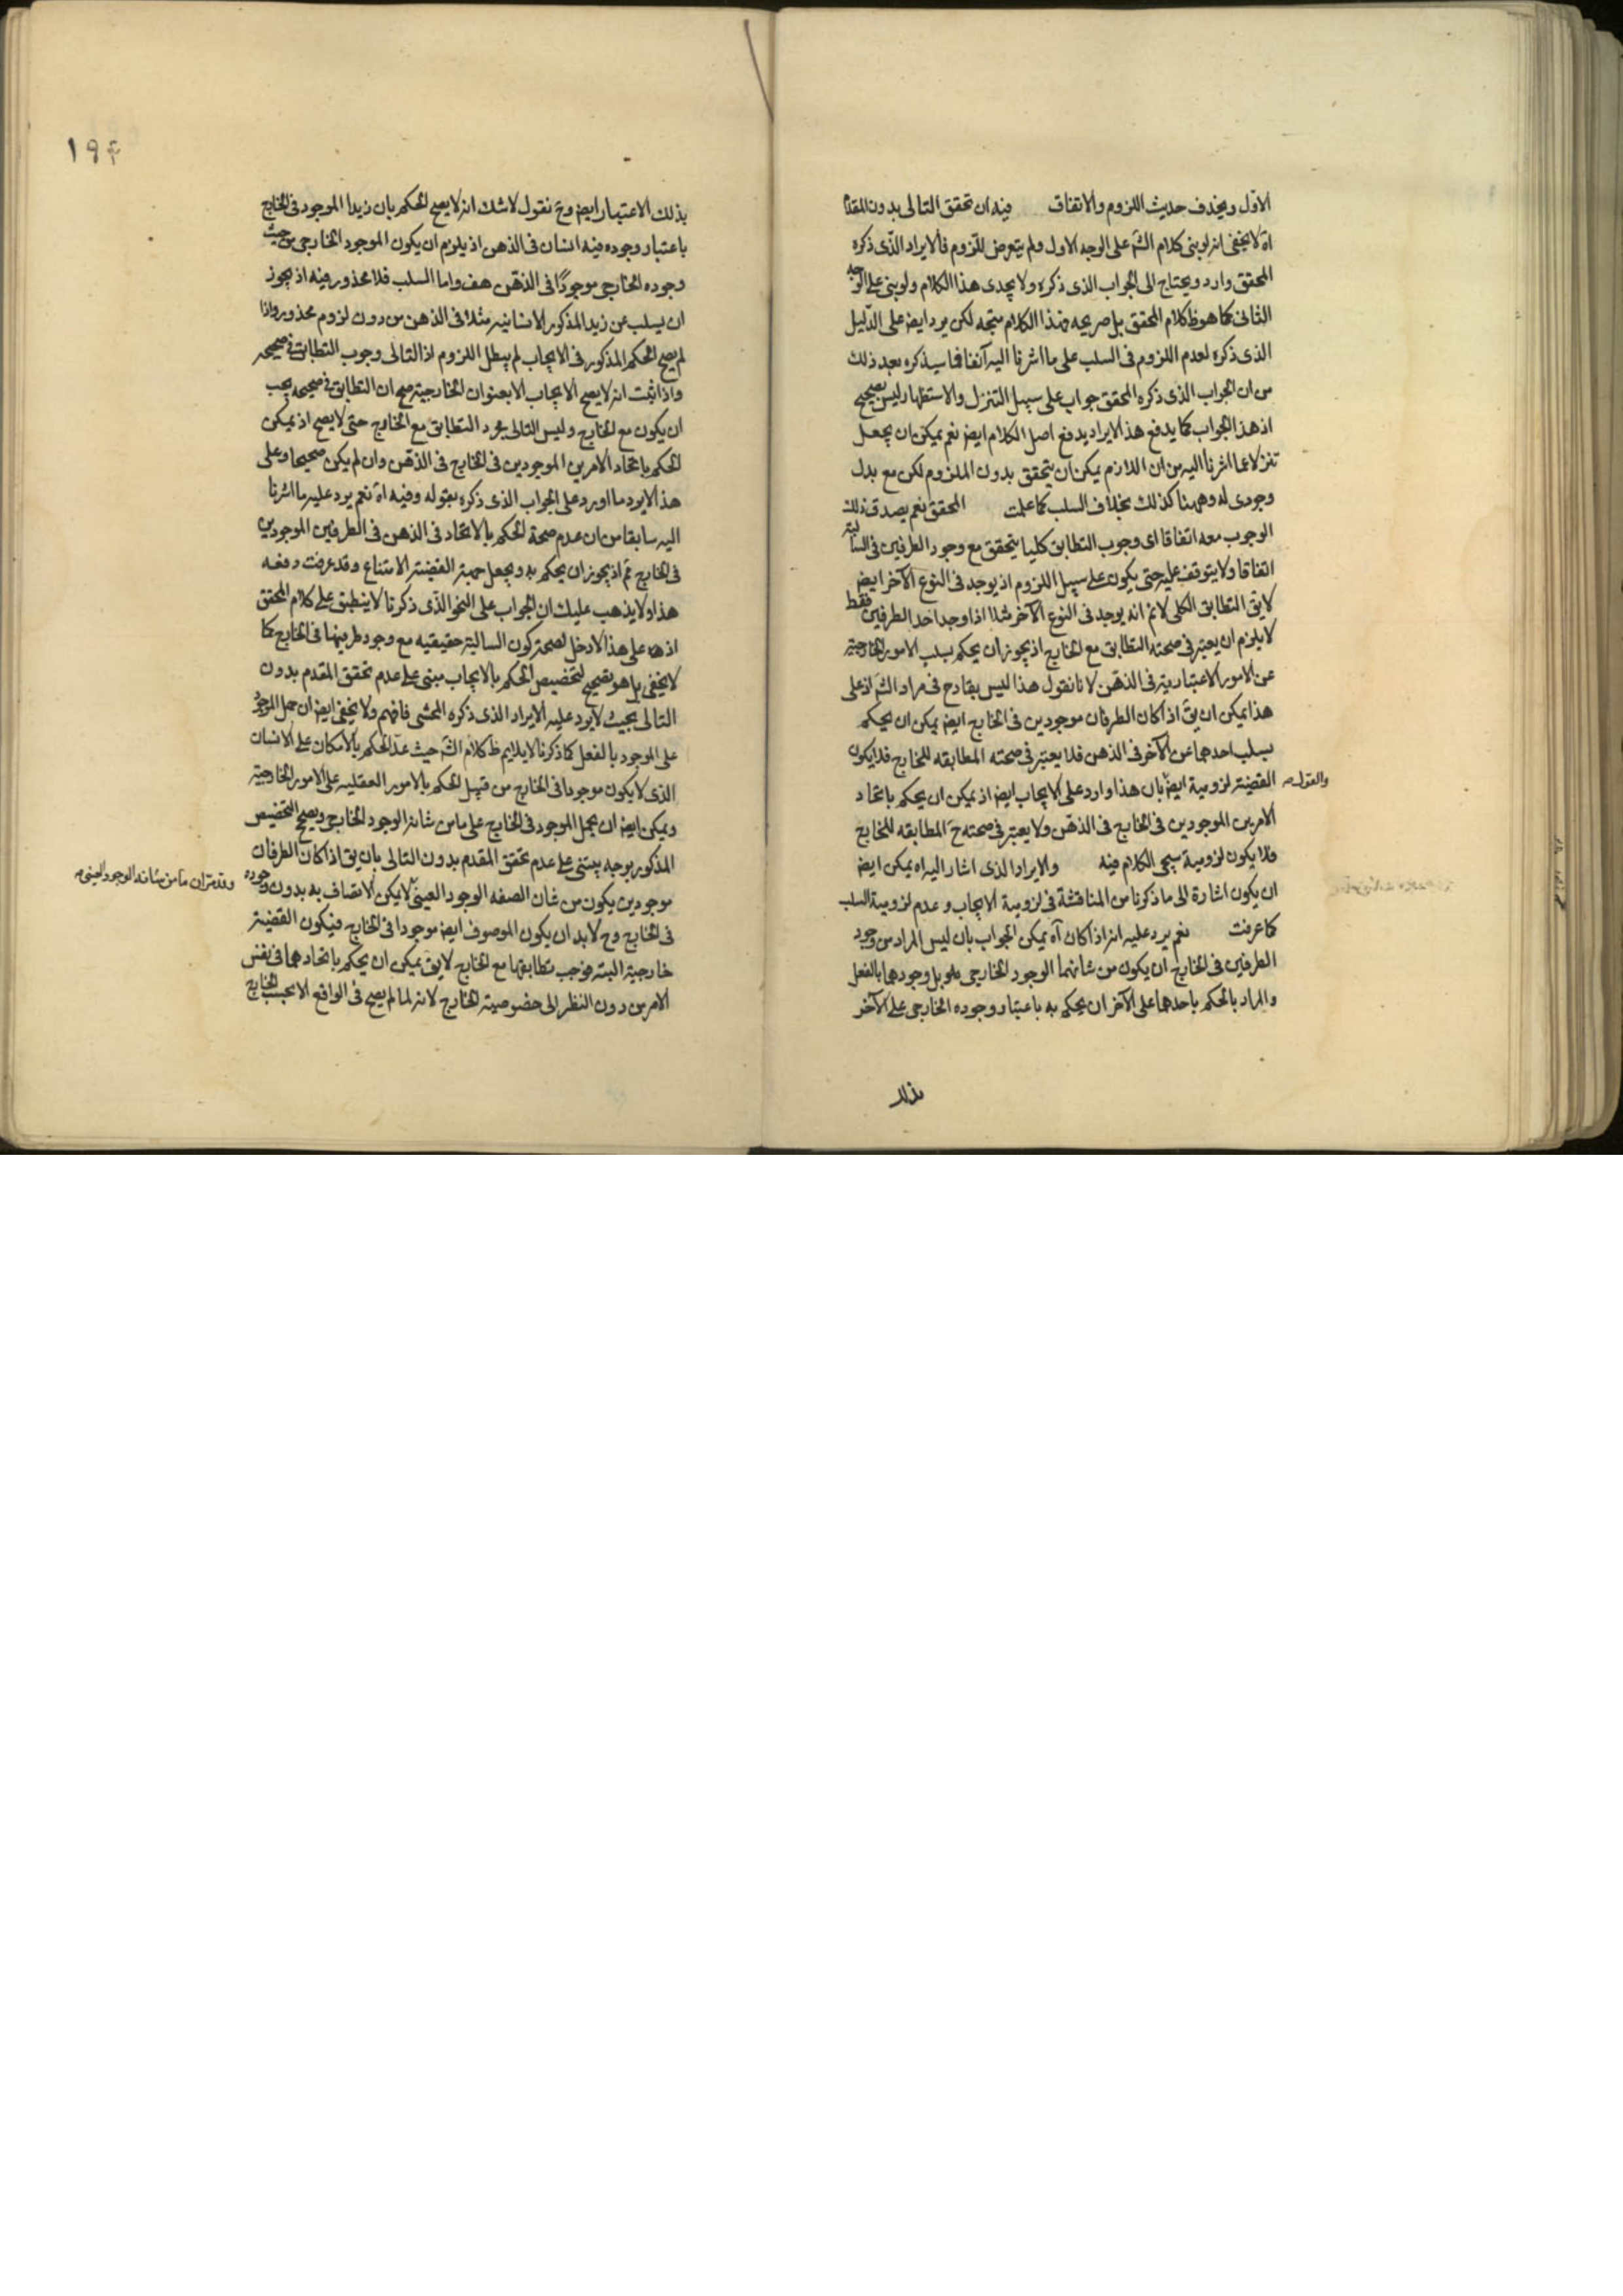 الاوّل ويحذف حديث اللزوم والاتفاق فيه ان تحقق التالى بدون المقدم
اه لا يخفى انه لو بنى كلام الشَ على الوجه الاول ولم يتعرض للّزوم فالايراد الذى ذكره
المحقق وارد ويحتاج الى الجواب الذى ذكره ولا يجدى هذا الكلام ولو بنى على الوجه
الثانى كما هو ظ كلام المحقق بل صريحه فهذا الكلام متجه لكن يرد ايض على الدّليل
الذى ذكره لعدم اللزوم فى السلب على ما اشرنا اليه آنفا فما سيذكره بعد ذلك
من ان الجواب الذى ذكره المحقق جواب على سبيل التنزل والاستظهار ليس بصحيح
اذ هذا الجواب كما يدفع هذا الايراد يدفع اصل الكلام ايض نعم يمكن ان يجعل
تنزلا عما اشرنا اليه من ان اللازم يمكن ان يتحقق بدون الملزوم لكن مع بدل
وجودى له وههنا كذلك بخلاف السلب كما علمت المحقق نعم يصدق ذلك
الوجوب معه اتفاقا اى وجوب التطابق كليا يتحقق مع وجود الطرفين فى السالبة
اتفاقا ولا يتوقف عليه حتى يكون على سبيل اللزوم اذ يوجد فى النوع الآخر ايض
لا يق التطابق الكلى لا نم انه يوجد فى النوع الآخر مثلا اذا وجد احد الطرفين فقط
لا يلزم ان يعتبر فى صحته التطابق مع الخارج اذ يجوز ان يحكم بسلب الامور الخارجية
عن الامور الاعتبارية فى الذهن لانا نقول هذا ليس بقادح فى مراد الشَ اذ على
هذا يمكن ان يقَ اذ اكان الطرفان موجودين فى الخارج ايض يمكن ان يحكم
بسلب احدهما عن الآخر فى الذهن فلا يعتبر فى صحته المطابقه للخارج فلا يكون
القضية لزومية ايض بان هذا وارد على الايجاب ايض اذ يمكن ان يحكم باتحاد
والقول
الامرين الموجودين فى الخارج فى الذهن ولا يعتبر فى صحته حَ المطابقه للخارج
فلا يكون لزومية سيجى الكلام فيه والايراد الذى اشار اليه اه يمكن ايض
ان يكون اشارة الى ما ذكرنا من المناقشة فى لزومية الايجاب وعدم لزومية السلب
كما عرفت نعم يرد عليه انه اذ اكان آه يمكن الجواب بان ليس المراد من وجود
الطرفين فى الخارج ان يكون من شانهما الوجود الخارجى بل وجودهما بالفعل
والمراد بالحكم باحدهما على الآخر ان يحكم به باعتبار وجوده الخارجى على الآخر
بذلك
١٩۴
بذلك الاعتبار ايض وحَ نقول لا شك انه لا يصح الحكم بان زيدا الموجود فى الخارج
باعتبار وجوده فيه انسان فى الذهن اذ يلزم ان يكون الموجود الخارجى من حيث
وجوده الخارجى موجودًا فى الذهن هف واما السلب فلا محذور فيه اذ يجوز
ان يسلب عن زيد المذكور الانسانيه مثلا فى الذهن من دون لزوم محذور واذا
لم يصح الحكم المذكور فى الايجاب لم يبطل اللزوم اذ التالى وجوب التطابق فى صحيحه
واذا ثبت انه لا يصح الايجاب الا بعنوان الخارجية صح ان التطابق فى صحيحه يجب
ان يكون مع الخارج وليس التالى مجرد التطابق مع الخارج حتى لا يصح اذ يمكن
الحكم باتحاد الامرين الموجودين فى الخارج فى الذهن وان لم يكن صحيحا وعلى
هذا لا يرد ما اورد على الجواب الذى ذكره بقوله وفيه اه نعم يرد عليه ما اشرنا
اليه سابقا من ان عدم صحة الحكم بالاتحاد فى الذهن فى الطرفين الموجودين
فى الخارج ثم اذ يجوز ان يحكم به ويجعل جهة القضية الامتناع وقد عرفت دفعه
هذا ولا يذهب عليك ان الجواب على النحو الذى ذكرنا لا ينطبق على كلام المحقق
اذ على هذا لا دخل لصحة كون السالبة حقيقيه مع وجود طرفيها فى الخارج كما
لا يخفى بل هو تصحيح لتخصيص الحكم بالايجاب مبنى على عدم تحقق المقدم بدون
التالى بحيث لا يرد عليه الايراد الذى ذكره المحشى فافهم ولا يخفى ايض ان حمل الموجود
على الموجود بالفعل كما ذكرنا لا يلايم ظ كلام الشَ حيث عدّ الحكم بالامكان على الانسان
الذى لا يكون موجودا فى الخارج من قبيل الحكم بالامور العقليه على الامور الخارجية
ويمكن ايض ان يحمل الموجود فى الخارج على ما من شانه الوجود الخارجى ويصح التخصيص
المذكور بوجه يبتنى على عدم تحقق المقدم بدون التالى بان يق اذ اكان الطرفان
موجودين يكون من شان الصفه الوجود العينى لا يمكن الاتصاف به بدون وجوده
وقد مر ان ما من شانه الوجود العينى
فى الخارج وح لا بد ان يكون الموصوف ايض موجودا فى الخارج فيكون القضية
خارجية البته فوجب تطابقها مع الخارج لا يق يمكن ان يحكم باتحادهما فى نفس
الامر من دون النظر الى خصوصية الخارج لانه لما لم يصح فى الواقع الا بحسب الخارج